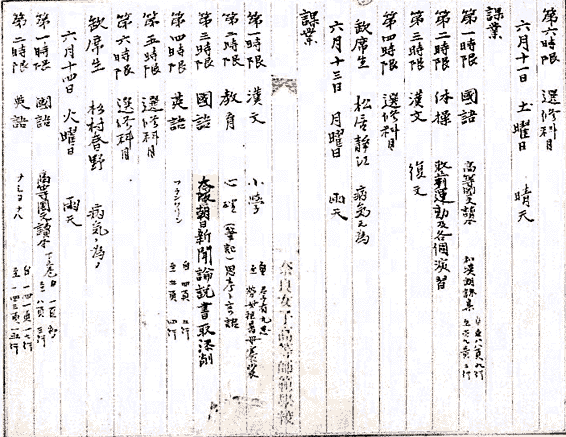 第六時限　選修科目
六月十一日　土曜日　晴天
課業
第一時限　國語　高等國文讀本　和漢朗詠集
第二時限　体操　整頓運動及各個演習
第三時限　漢文　復文
第四時限　選修科目
欽席生　松信静江　病氣ノ為
六月十三日　月曜日　雨天
課業
奈良女子高等師範學校
第一時限　漢文　小學
第二時限　教育　心理（筆記）思考ト言語
第三時限　國語　大阪朝日新聞論説書取添削
第四時限　英語　フランクリン　自四頁　至五頁
第五時限　選修科目
第六時限　選修科目
欽席生　杉村春野　病氣ノ為
六月十四日　火曜日　雨天
第一時限　國語　高等國文讀本
第二時限　英語　自一四一頁一七行　至一四三頁一五行